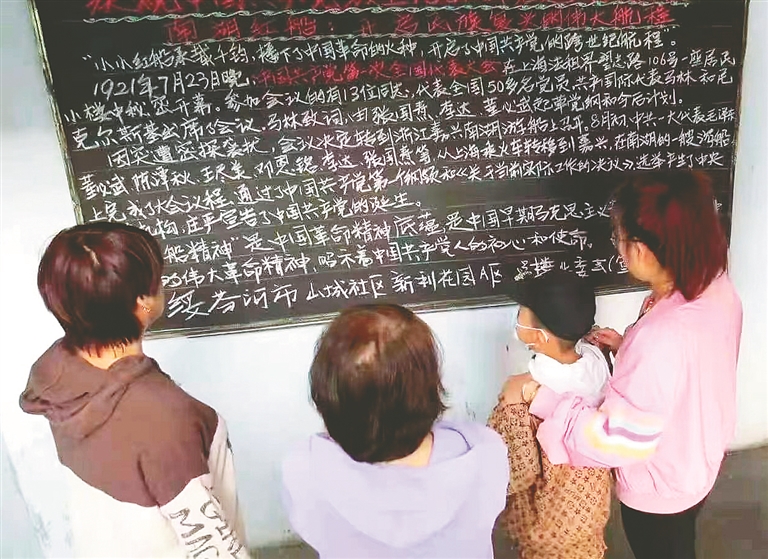 南湖红船：开启民族复兴的伟大航程
"小小红船承载千钧，播下了中国革命的火种，开启了中国共产党的跨世纪航程"。
1921年7月23日晚，中国共产党第一次全国代表大会在上海法租界望志路106号一座居民
小楼中秘密开幕。参加会议的有13位同志，代表全国50多名党员，共产国际代表马林和尼
克尔斯基出席会议。马林致词，由张国焘、李达、董必武起草党纲和今后计划。
因突遭密探袭扰，会议决定转到浙江嘉兴南湖游船上召开。8月初，中共一大代表毛泽东
董必武 陈潭秋、王尽美、邓恩铭、李达、张国焘等，从上海乘火车转移到嘉兴，在南湖的一艘游船
上完成了大会议程，通过了中国共产党第一个纲领和《关于当前实际工作的决议》，选举产生了中央
机构，庄严宣告了中国共产党的诞生。
船精神"是中国革命精神底蕴，是中国早期马克思主义
的伟大革命精神，昭示着中国共产党人的初心和使命。
绥芬河市 山城社区 新利花园A区